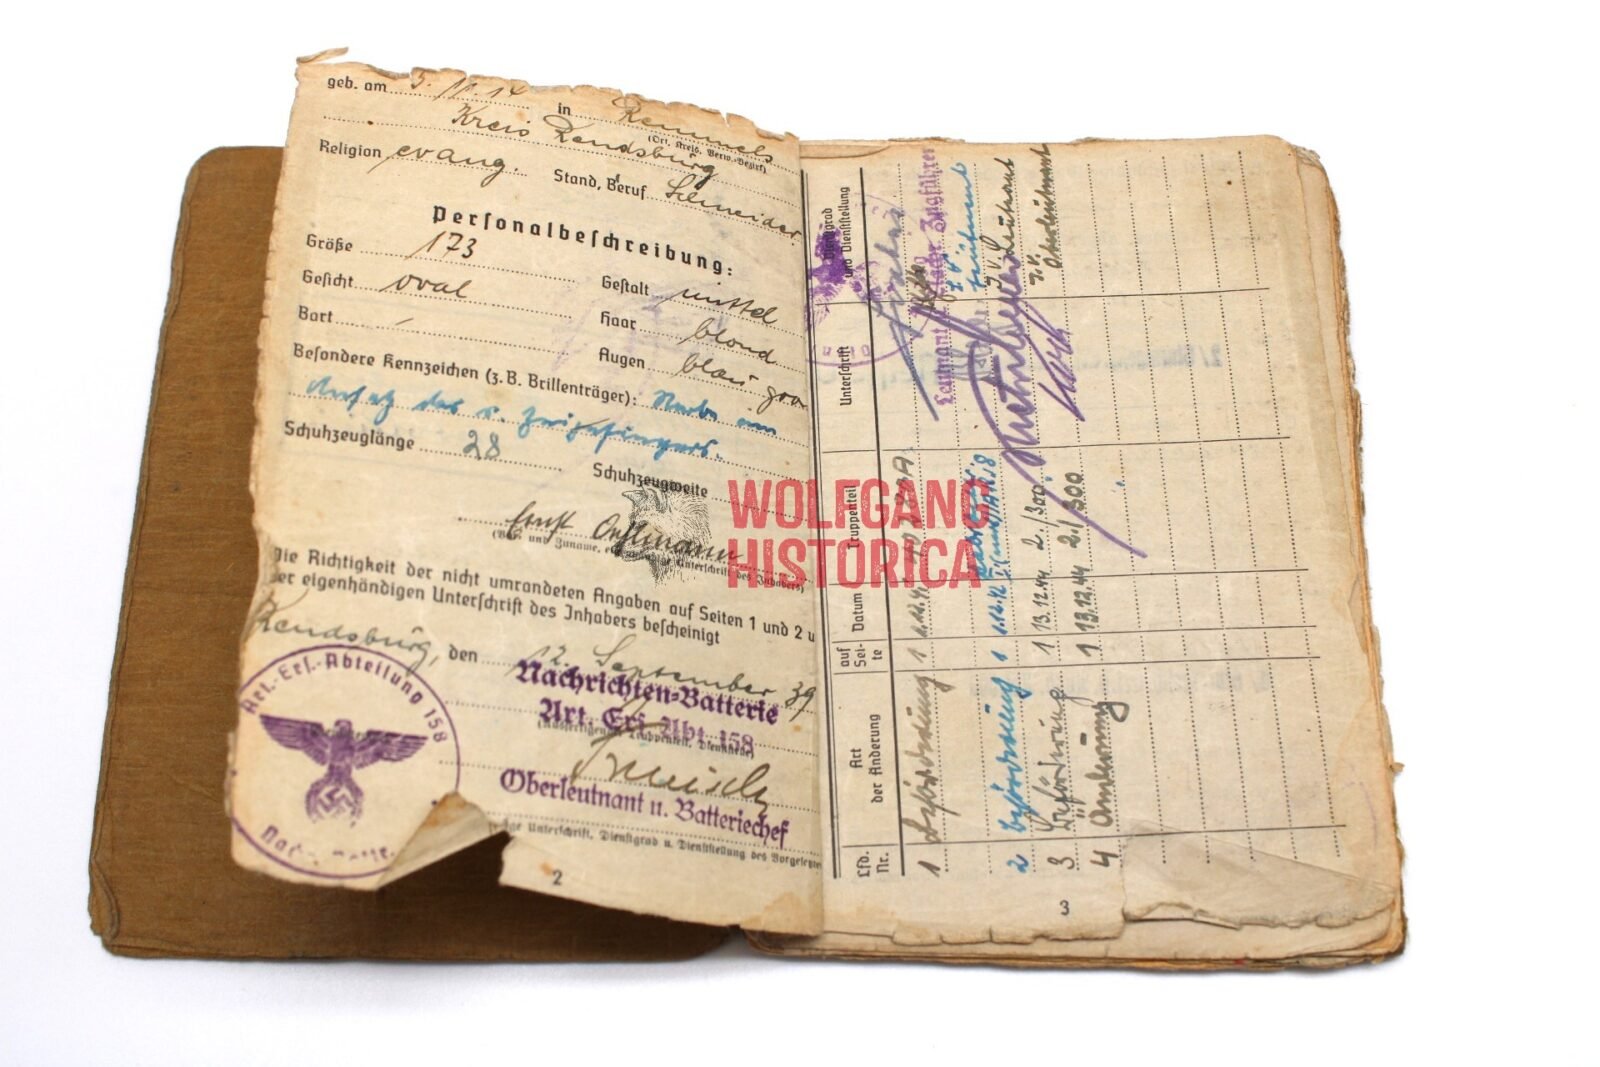 geb. am 5. 11. 14 in Remmels
(Ort, Kreis, Verw.-Bezirk)
Kreis Rendsburg
Religion evang. Stand, Beruf Schneider
Personalbeschreibung:
Größe 173 Gestalt mittel
Gesicht oval Haar blond
Bart - Augen blau grau
Besondere Kennzeichen (z. B. Brillenträger): Narbe am
Ansatz des r. Zeigefingers.
Schuhzeuglänge 28 Schuhzeugweite
Ernst
Unterschrift des Inhabers)
die Richtigkeit der nicht umrandeten Angaben auf Seiten 1 und 2 u
der eigenhändigen Unterschrift des Inhabers bescheinigt
Rendsburg, den 12. September 39
Nachrichten-Batterie
Art. Ers. Abt. 158
(Ausfertigender Truppenteil, Dienststelle)
Oberleutnant u. Batteriechef
Unterschrift, Dienstgrad u. Dienststellung des Vorgesetzten
Art.-Ers.-Abteilung 158
2
WOLFGANG
HISTORICA
Lfd. Nr. Art der Änderung auf Seite Datum Truppenteil Unterschrift Dienstgrad und Dienststellung
1 Beförderung 1
Leutnant Zugführer
2 Beförderung 1 1.12.42
3 Beförderung 1 13.12.44 2./300 Leutnant
4 Änderung 1 13.12.44 2./300 J.V. Oberleutnant
3